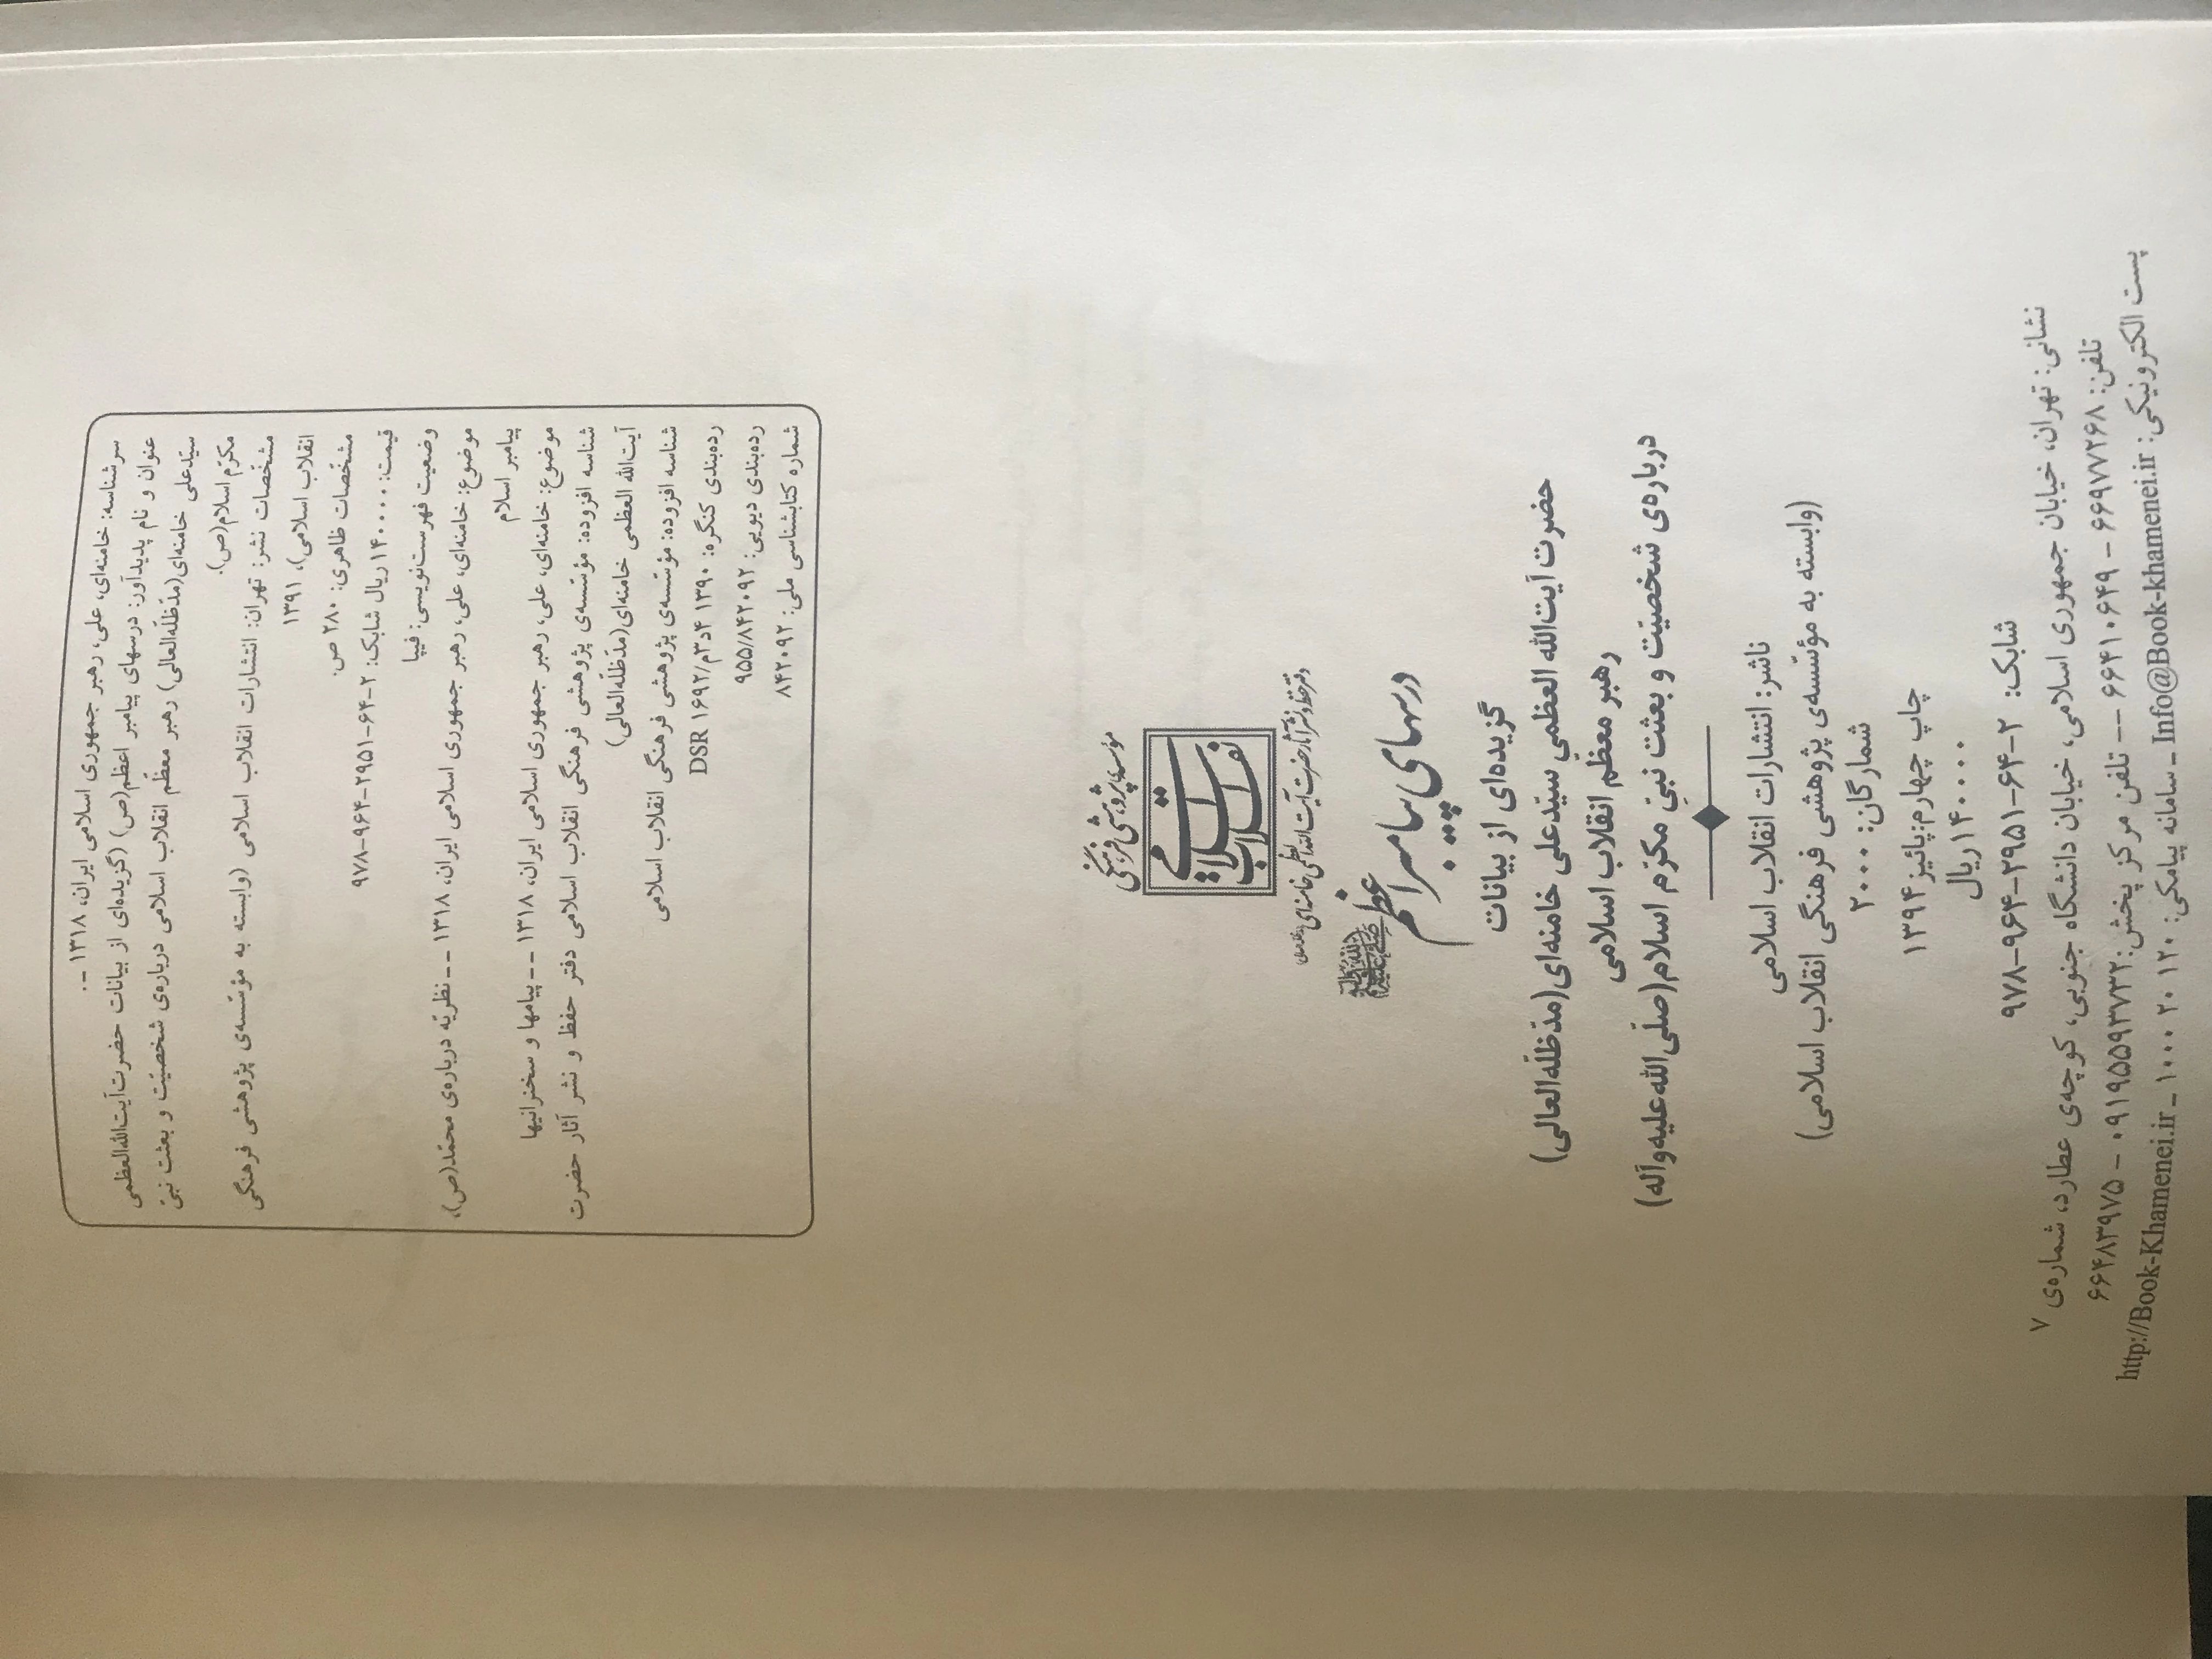 سرشناسه: خامنه‌ای، علی، رهبر جمهوری اسلامی ایران، ۱۳۱۸ -.
عنوان و نام پدیدآور: درسهای پیامبر اعظم(ص) (گزیده‌ای از بیانات حضرت‌آیت‌الله‌العظمی
سیّدعلی خامنه‌ای(مدّظلّه‌العالی) رهبر معظّم انقلاب اسلامی درباره‌ی شخصیّت و بعثت نبیّ
مکرّم اسلام(ص).
مشخّصات نشر: تهران: انتشارات انقلاب اسلامی (وابسته به مؤسّسه‌ی پژوهشی فرهنگی
انقلاب اسلامی)، ۱۳۹۱
مشخّصات ظاهری: ۲۸۰ ص.
قیمت: ۱۴۰۰۰۰ ریال شابک: ۲-۶۴-۲۹۵۱-۹۶۴-۹۷۸
وضعیت فهرست‌نویسی: فیپا
موضوع: خامنه‌ای، علی، رهبر جمهوری اسلامی ایران، ۱۳۱۸ -- نظریّه درباره‌ی محمّد(ص)،
پیامبر اسلام
موضوع: خامنه‌ای، علی، رهبر جمهوری اسلامی ایران، ۱۳۱۸ -- پیامها و سخنرانیها
شناسه افزوده: مؤسّسه‌ی پژوهشی فرهنگی انقلاب اسلامی دفتر حفظ و نشر آثار حضرت
آیت‌الله العظمی خامنه‌ای(مدّظلّه‌العالی)
شناسه افزوده: مؤسّسه‌ی پژوهشی فرهنگی انقلاب اسلامی
رده‌بندی کنگره: ۱۳۹۰ ۴د۳م/۱۶۹۲ DSR
رده‌بندی دیویی: ۹۵۵/۸۴۲۰۹۲
شماره کتابشناسی ملی: ۸۴۲۰۹۲
مؤسسه پژوهشی فرهنگی
انقلاب اسلامی
دفتر حفظ و نشر آثار حضرت آیت‌الله‌العظمی خامنه‌ای
درسهای پیامبر اعظم ﷺ
گزیده‌ای از بیانات
حضرت آیت‌الله العظمی سیّدعلی خامنه‌ای(مدّظلّه‌العالی)
رهبر معظّم انقلاب اسلامی
درباره‌ی شخصیّت و بعثت نبیّ مکرّم اسلام(صلّی‌الله‌علیه‌وآله)
ناشر: انتشارات انقلاب اسلامی
(وابسته به مؤسّسه‌ی پژوهشی فرهنگی انقلاب اسلامی)
شمارگان: ۲۰۰۰
چاپ چهارم: پائیز ۱۳۹۴
۱۴۰۰۰۰ ریال
شابک: ۲-۶۴-۲۹۵۱-۹۶۴-۹۷۸
نشانی: تهران، خیابان جمهوری اسلامی، خیابان دانشگاه جنوبی، کوچه‌ی عطارد، شماره‌ی ۷
تلفن: ۶۶۹۷۷۲۶۸ - ۶۶۴۱۰۶۴۹ -- تلفن مرکز پخش: ۰۹۱۹۵۵۹۳۷۳۲ - ۶۶۴۸۳۹۷۵
پست الکترونیکی: Info@Book-khamenei.ir _ سامانه پیامکی: ۱۰۰۰۲۰۱۲۰ _ http://Book-Khamenei.ir